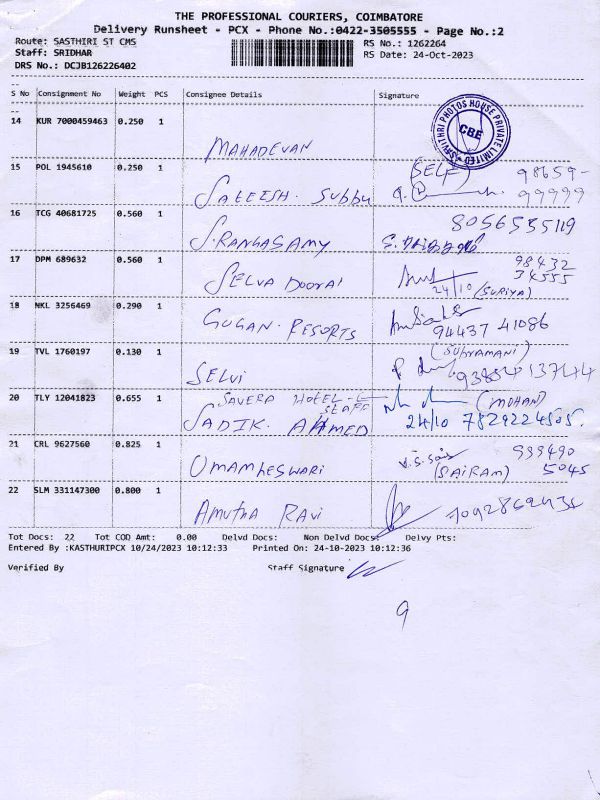 THE PROFESSIONAL COURIERS, COIMBATORE
Delivery Runsheet - PCX - Phone No.:0422-3505555 - Page No.:2
Route: SASTHIRI ST CMS
RS No.: 1262264
Staff: SRIDHAR
RS Date: 24-Oct-2023
DRS No.: DCJB126226402
S No Consignment No Weight PCS Consignee Details Signature
14 KUR 7000459463 0.250 1 MAHADEVAN
SAVITHRI PHOTOS HOUSE PRIVATE LIMITED
CBE
15 POL 1945610 0.250 1 SATEESH. Subbu (SELF) 98659-
99999
16 TCG 40681725 0.560 1 S. RANGASAMY 8056535119
17 DPM 689632 0.560 1 SELVA DOORAI 98432
34555
24/10 (SURIYA)
18 NKL 3256469 0.290 1 GUGAN. RESORTS 94437 41086
19 TVL 1760197 0.130 1 SELVI (SUBRAMANI)
20 TLY 12041823 0.655 1 SAVERA HOTEL - STAFF
SADIK. AHMED (MOHAN)
24/10 7829224505.
21 CRL 9627560 0.825 1 UMAMHESWARI V.S. Sai 999490
(SAIRAM) 5045
22 SLM 331147300 0.800 1 AMUTHA RAVI
Tot Docs: 22 Tot COD Amt: 0.00 Delvd Docs: Non Delvd Docs: Delvy Pts:
Entered By :KASTHURIPCX 10/24/2023 10:12:33 Printed On: 24-10-2023 10:12:36
Verified By Staff Signature
9